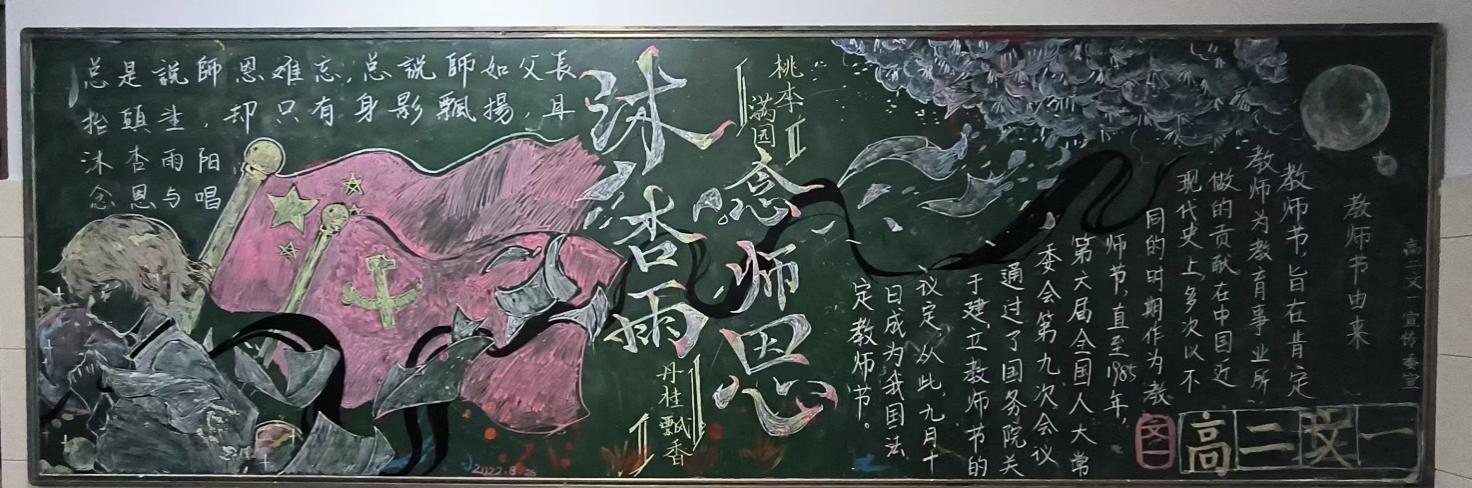 总是説師恩难忘,总説師如父長
抬頭望,却只有身影飄揚,耳
沐杏雨阳
念恩与唱
沐杏雨
念师恩
桃李
满园
丹桂
飘香
教师节由来
教师节,旨在肯定
教师为教育事业所
做的贡献在中国近
现代史上,多次以不
同的时期作为教
师节直至1985年,
第六届全国人大常
委会第九次会议
通过了国务院关
于建立教师节的
议定,从此,九月十
日成为我国法
定教师节。
高二文一宣传委宣
文一
高二文一
2022.8.26